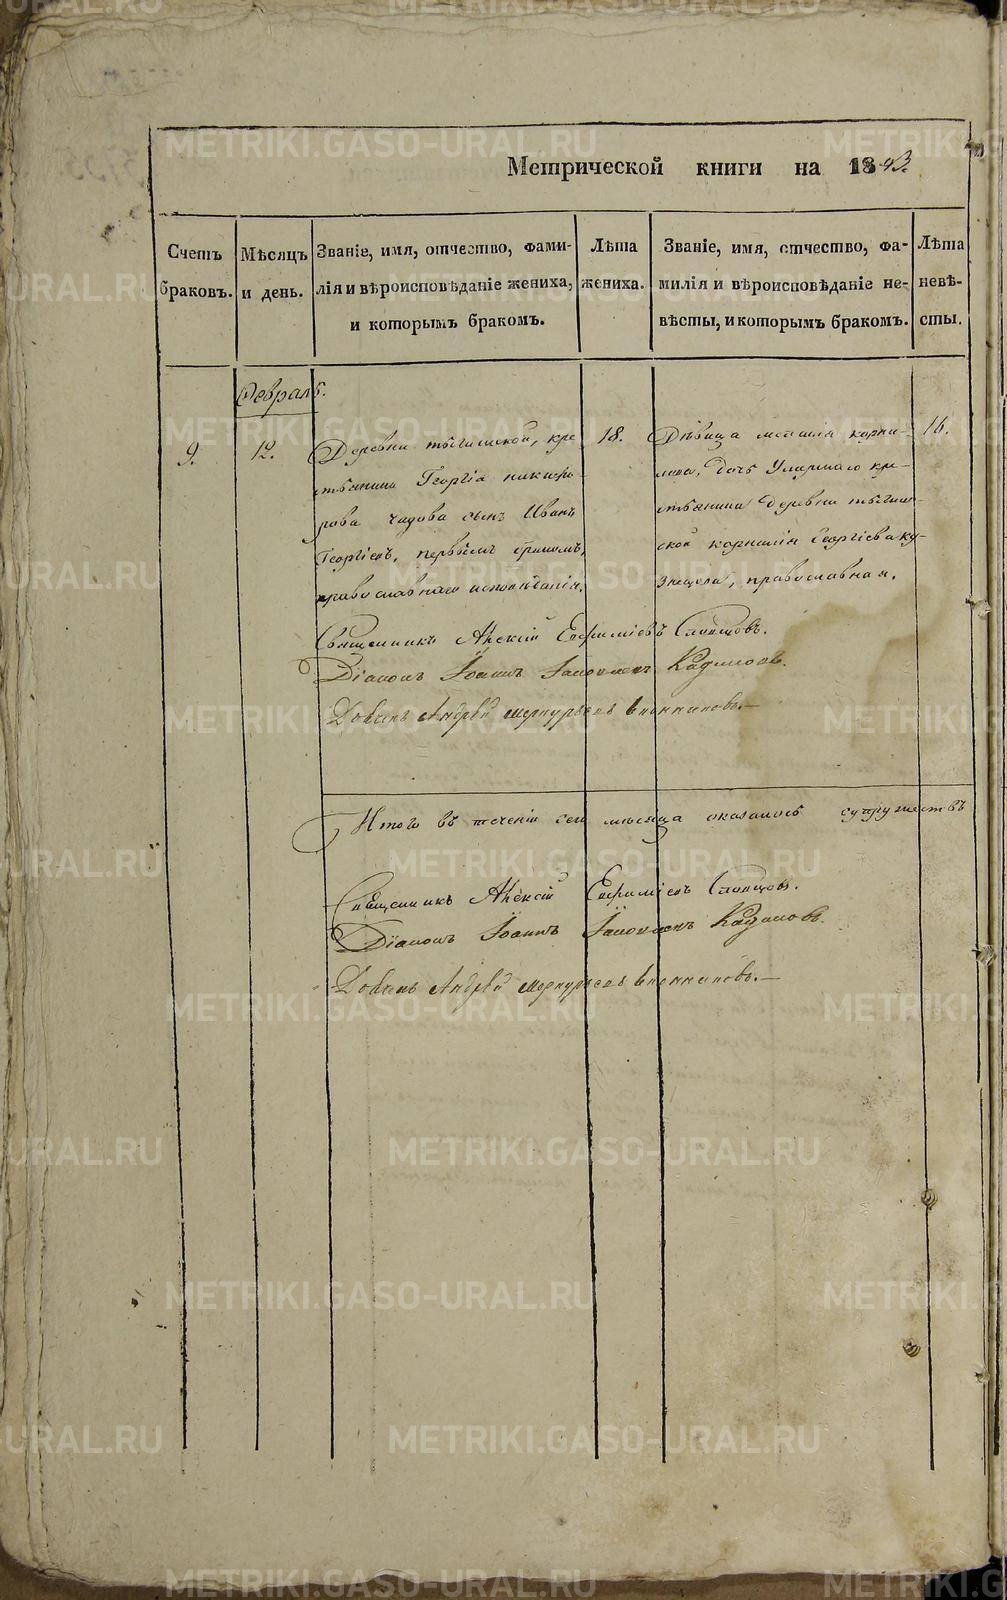 Метрической книги на 1843.
Счетъ браковъ.
Мѣсяцъ и день.
Званіе, имя, отчество, фами-
лія и вѣроисповѣданіе жениха,
и которымъ бракомъ.
Лѣта
жениха.
Званіе, имя, отчество, фа-
милія и вѣроисповѣданіе не-
вѣсты, и которымъ бракомъ.
Лѣта
невѣ-
сты.
Февраль.
9.
12.
Деревни кре
стьянина Георгія никифо
рова чадова сынъ Иванъ
Георгіевъ, первымъ бракомъ,
православнаго исповѣданія.
18.
Дѣвица корни-
лова, дочь Умершаго кре-
стьянина деревни
ской корнилія Георгіева ку-
знецова, православная.
16.
Священникъ Алексій Евфиміевъ Слопцовъ.
Діаконъ Іоаннъ Іаковлевъ Кадиловъ.
Андрей меркурьевъ
Итого въ теченіи сего мѣсяца оказалось супружествъ
Священникъ Алексій Евфиміевъ Слопцовъ.
Діаконъ Іоаннъ Іаковлевъ Кадиловъ.
Андрей меркурьевъ
METRIKI.GASO-URAL.RU